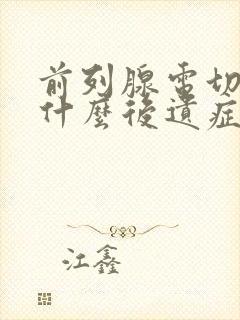 前列腺電切
什麼後遺症
江鑫